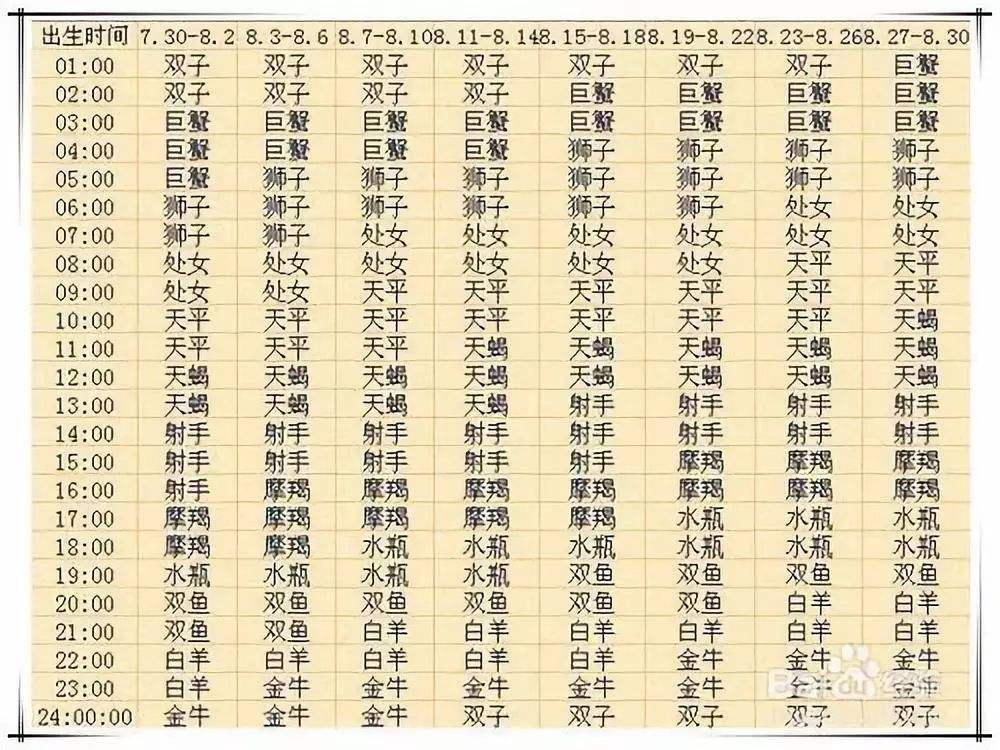 出生时间 7.30-8.2 8.3-8.6 8.7-8.10 8.11-8.14 8.15-8.18 8.19-8.22 8.23-8.26 8.27-8.30
01:00 双子 双子 双子 双子 双子 双子 双子 巨蟹
02:00 双子 双子 双子 双子 巨蟹 巨蟹 巨蟹 巨蟹
03:00 巨蟹 巨蟹 巨蟹 巨蟹 巨蟹 巨蟹 巨蟹 巨蟹
04:00 巨蟹 巨蟹 巨蟹 巨蟹 狮子 狮子 狮子 狮子
05:00 巨蟹 狮子 狮子 狮子 狮子 狮子 狮子 狮子
06:00 狮子 狮子 狮子 狮子 狮子 狮子 处女 处女
07:00 狮子 狮子 处女 处女 处女 处女 处女 处女
08:00 处女 处女 处女 处女 处女 处女 天平 天平
09:00 处女 处女 天平 天平 天平 天平 天平 天平
10:00 天平 天平 天平 天平 天平 天平 天平 天蝎
11:00 天平 天平 天平 天蝎 天蝎 天蝎 天蝎 天蝎
12:00 天蝎 天蝎 天蝎 天蝎 天蝎 天蝎 天蝎 天蝎
13:00 天蝎 天蝎 天蝎 天蝎 射手 射手 射手 射手
14:00 射手 射手 射手 射手 射手 射手 射手 射手
15:00 射手 射手 射手 射手 射手 摩羯 摩羯 摩羯
16:00 射手 摩羯 摩羯 摩羯 摩羯 摩羯 摩羯 摩羯
17:00 摩羯 摩羯 摩羯 摩羯 摩羯 水瓶 水瓶 水瓶
18:00 摩羯 摩羯 水瓶 水瓶 水瓶 水瓶 水瓶 水瓶
19:00 水瓶 水瓶 水瓶 水瓶 双鱼 双鱼 双鱼 双鱼
20:00 双鱼 双鱼 双鱼 双鱼 双鱼 双鱼 白羊 白羊
21:00 双鱼 双鱼 白羊 白羊 白羊 白羊 白羊 白羊
22:00 白羊 白羊 白羊 白羊 白羊 金牛 金牛 金牛
23:00 白羊 金牛 金牛 金牛 金牛 金牛 金牛 金牛
24:00:00 金牛 金牛 金牛 双子 双子 双子 双子 双子
Baidu 经验